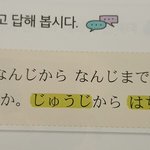 고 답해 봅시다.
なんじから なんじまで
か。じゅうじから はち